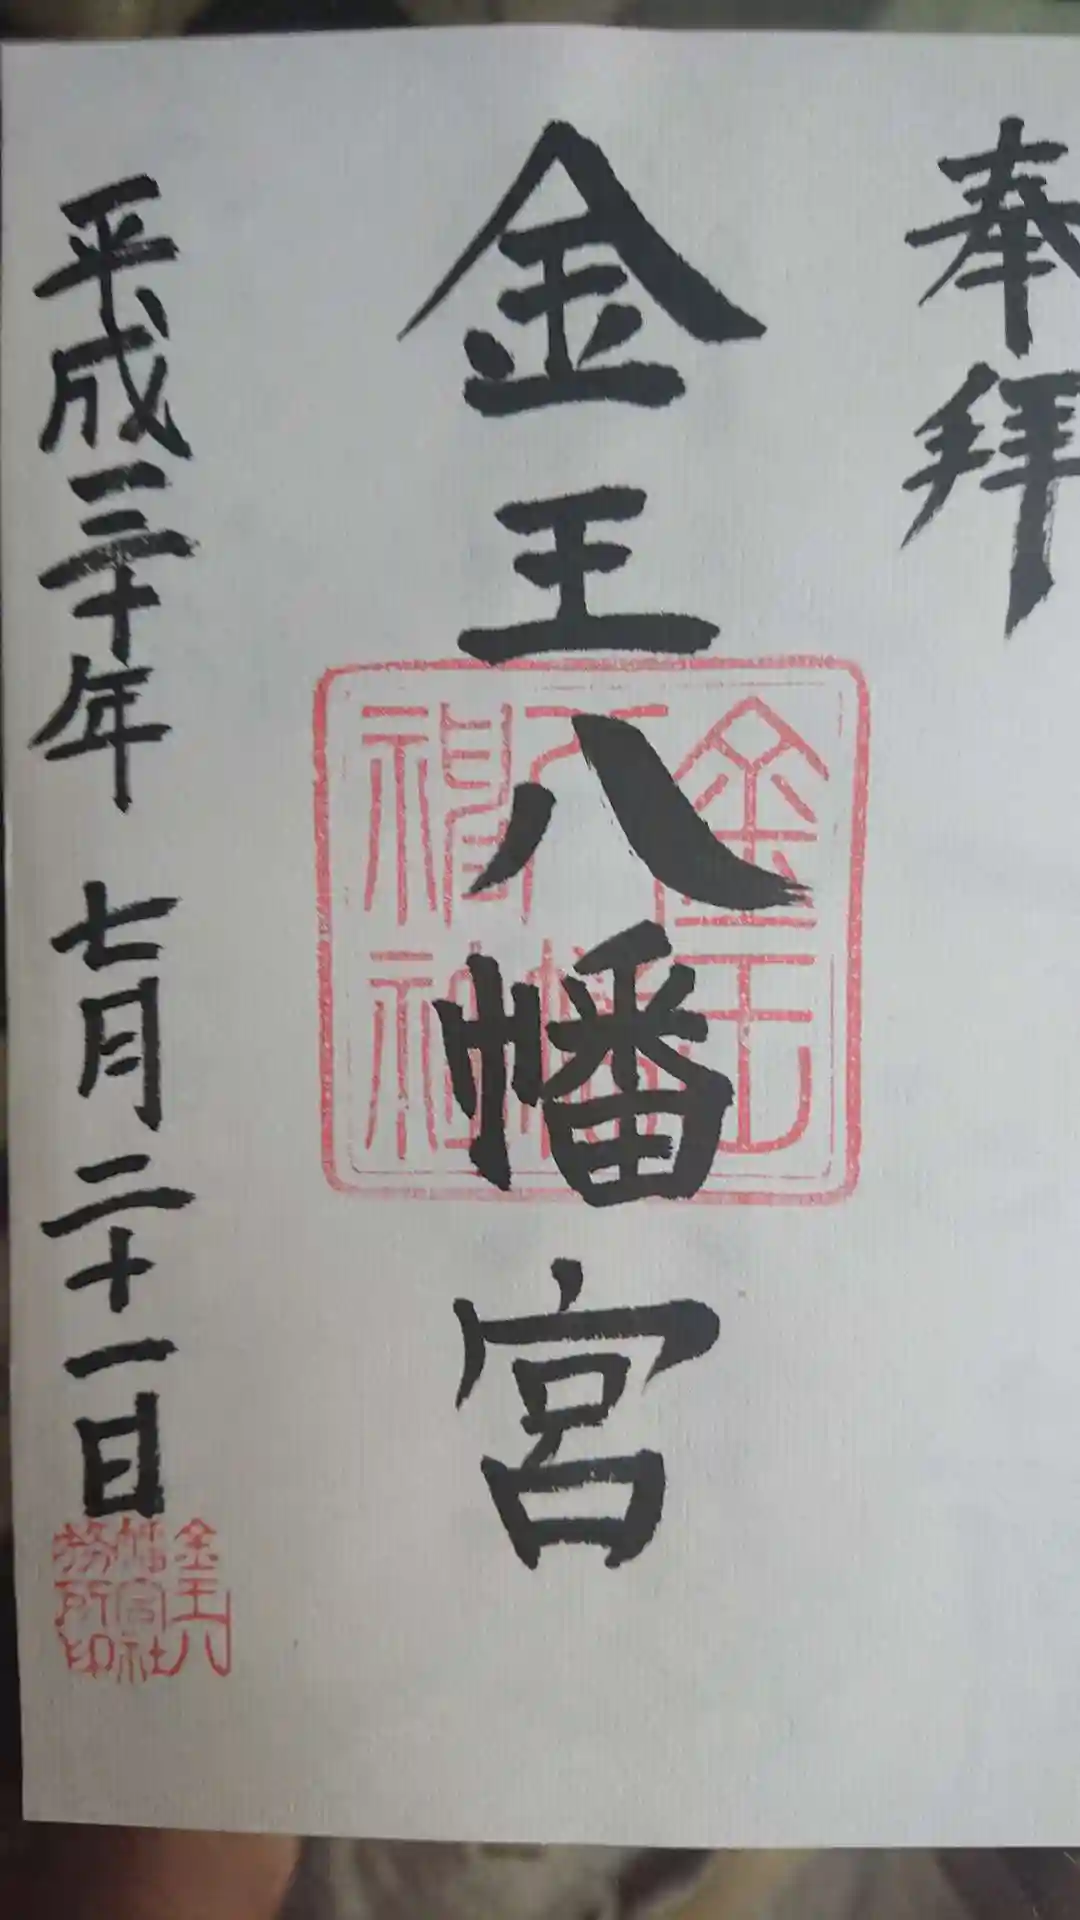 奉拝
金王八幡宮
金王八幡神社
平成三十年 七月二十一日
金王八
幡宮社
務所印